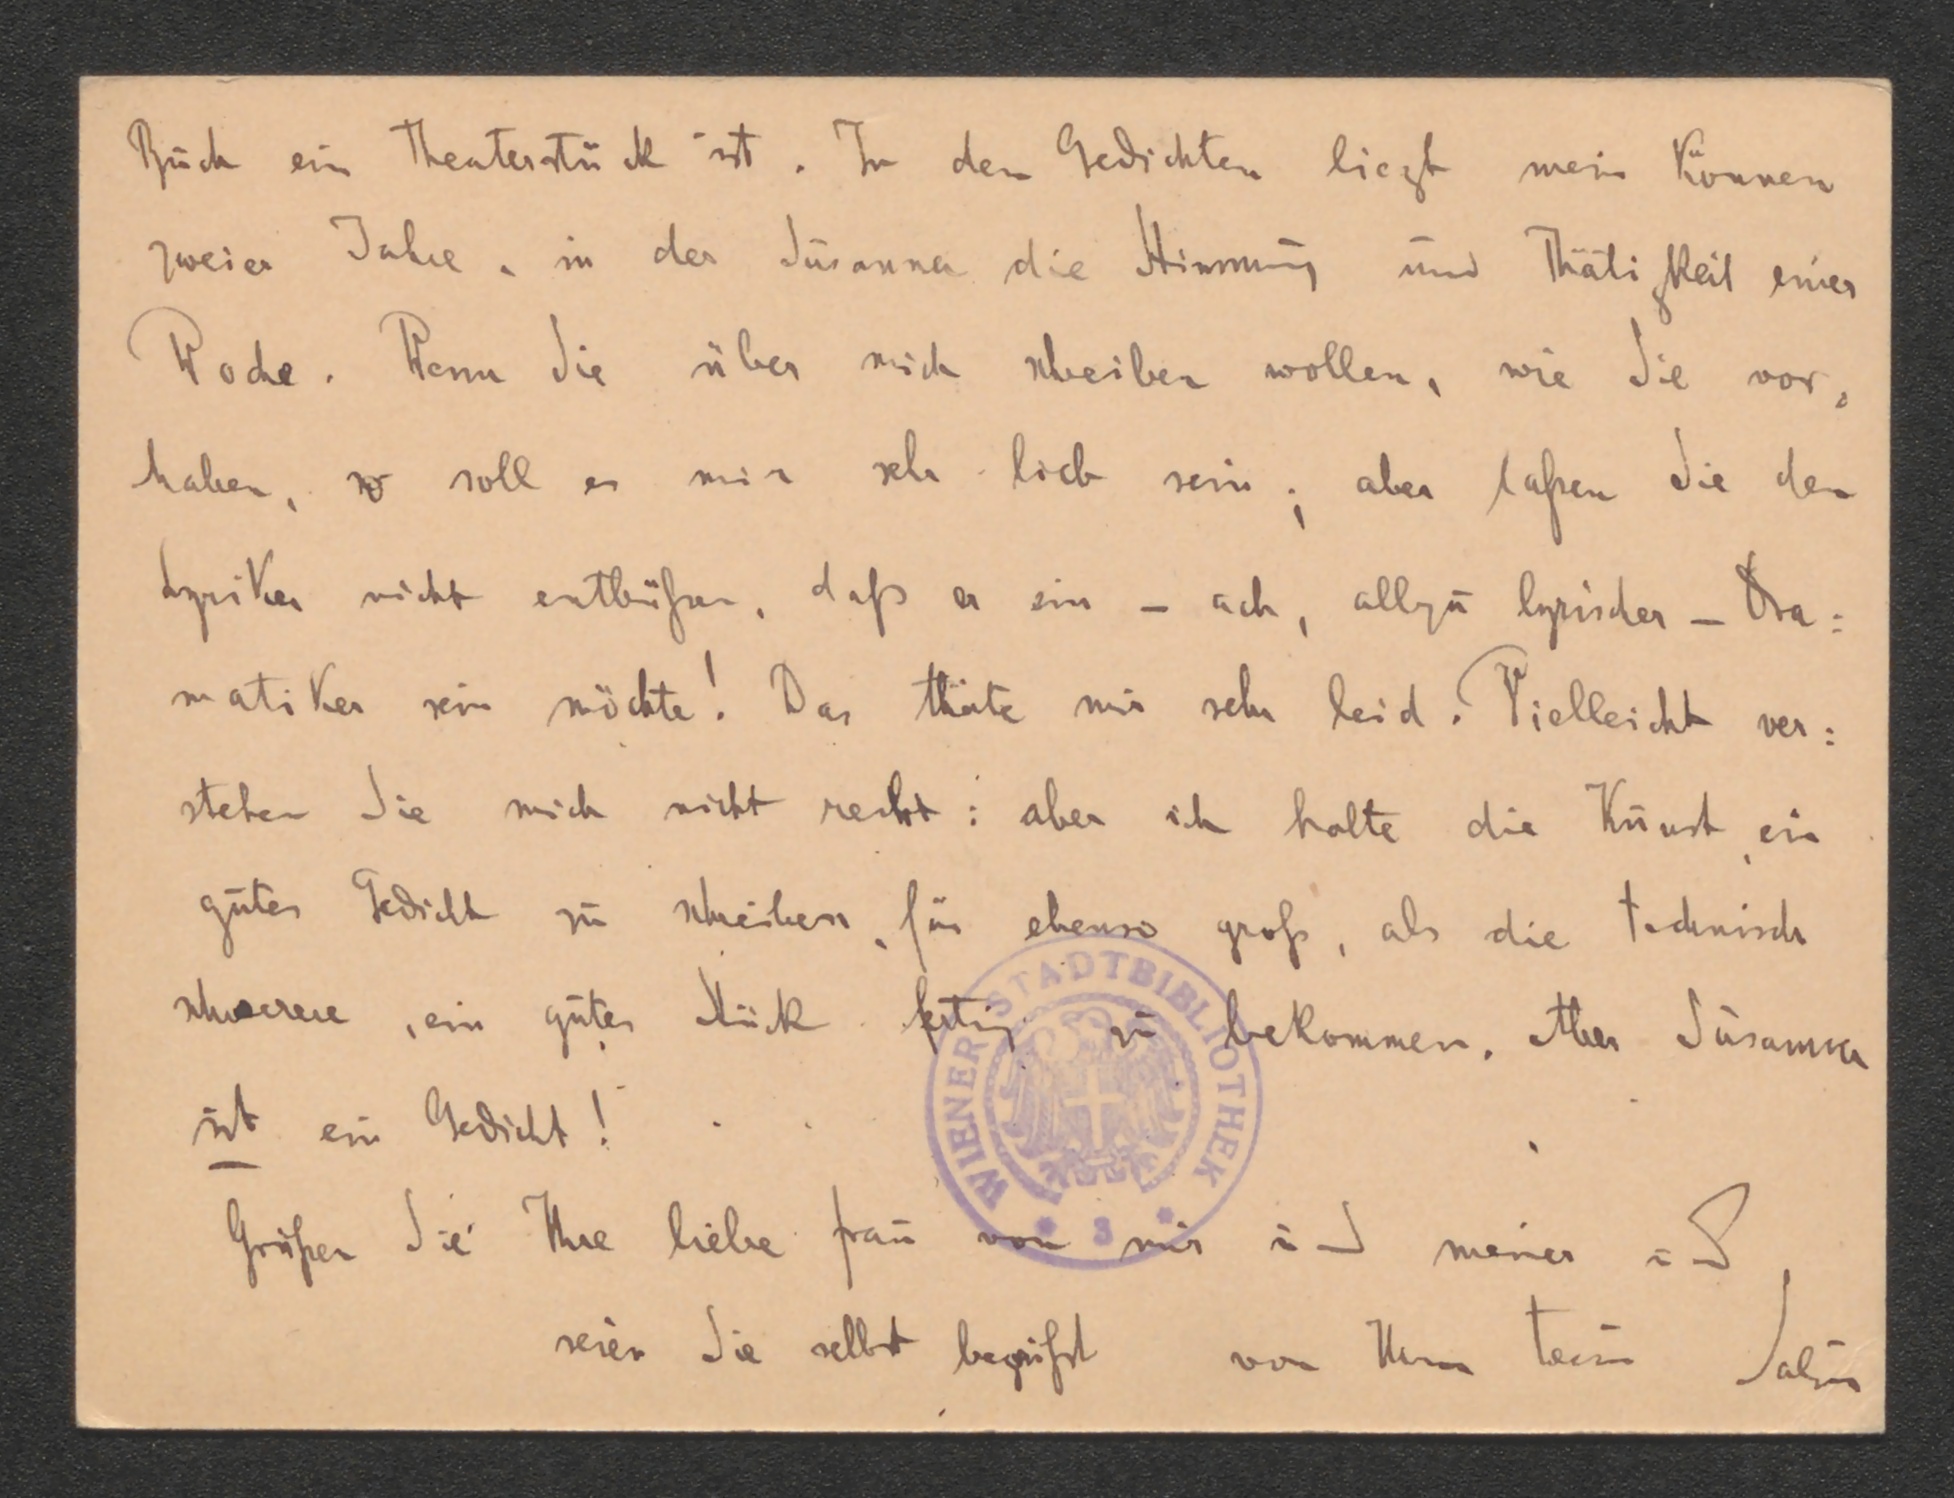 Buch ein Theaterstück ist. In den Gedichten liegt mein Können
zweier Jahre, in der Susanna die Stimmung und Thätigkeit einer
Woche. Wenn Sie über mich schreiben wollen, wie Sie vor,
haben, so soll es mir sehr lieb sein; aber laßen Sie den
Lyriker nicht entbüßen, daß er ein – ach, allzu lyrischer – Dra:
matiker sein möchte! Das thäte mir sehr leid. Vielleicht ver:
stehen Sie mich nicht recht: aber ich halte die Kunst, ein
gutes Gedicht zu schreiben, für ebenso groß, als die technisch
schwerere, ein gutes Stück fertig zu bekommen. Aber Susanna
ist ein Gedicht!
Grüßen Sie Ihre liebe Frau von mir und meiner und
seien Sie selbst begrüßt von Ihrem treuen Salus
WIENER STADTBIBLIOTHEK
* 3 *